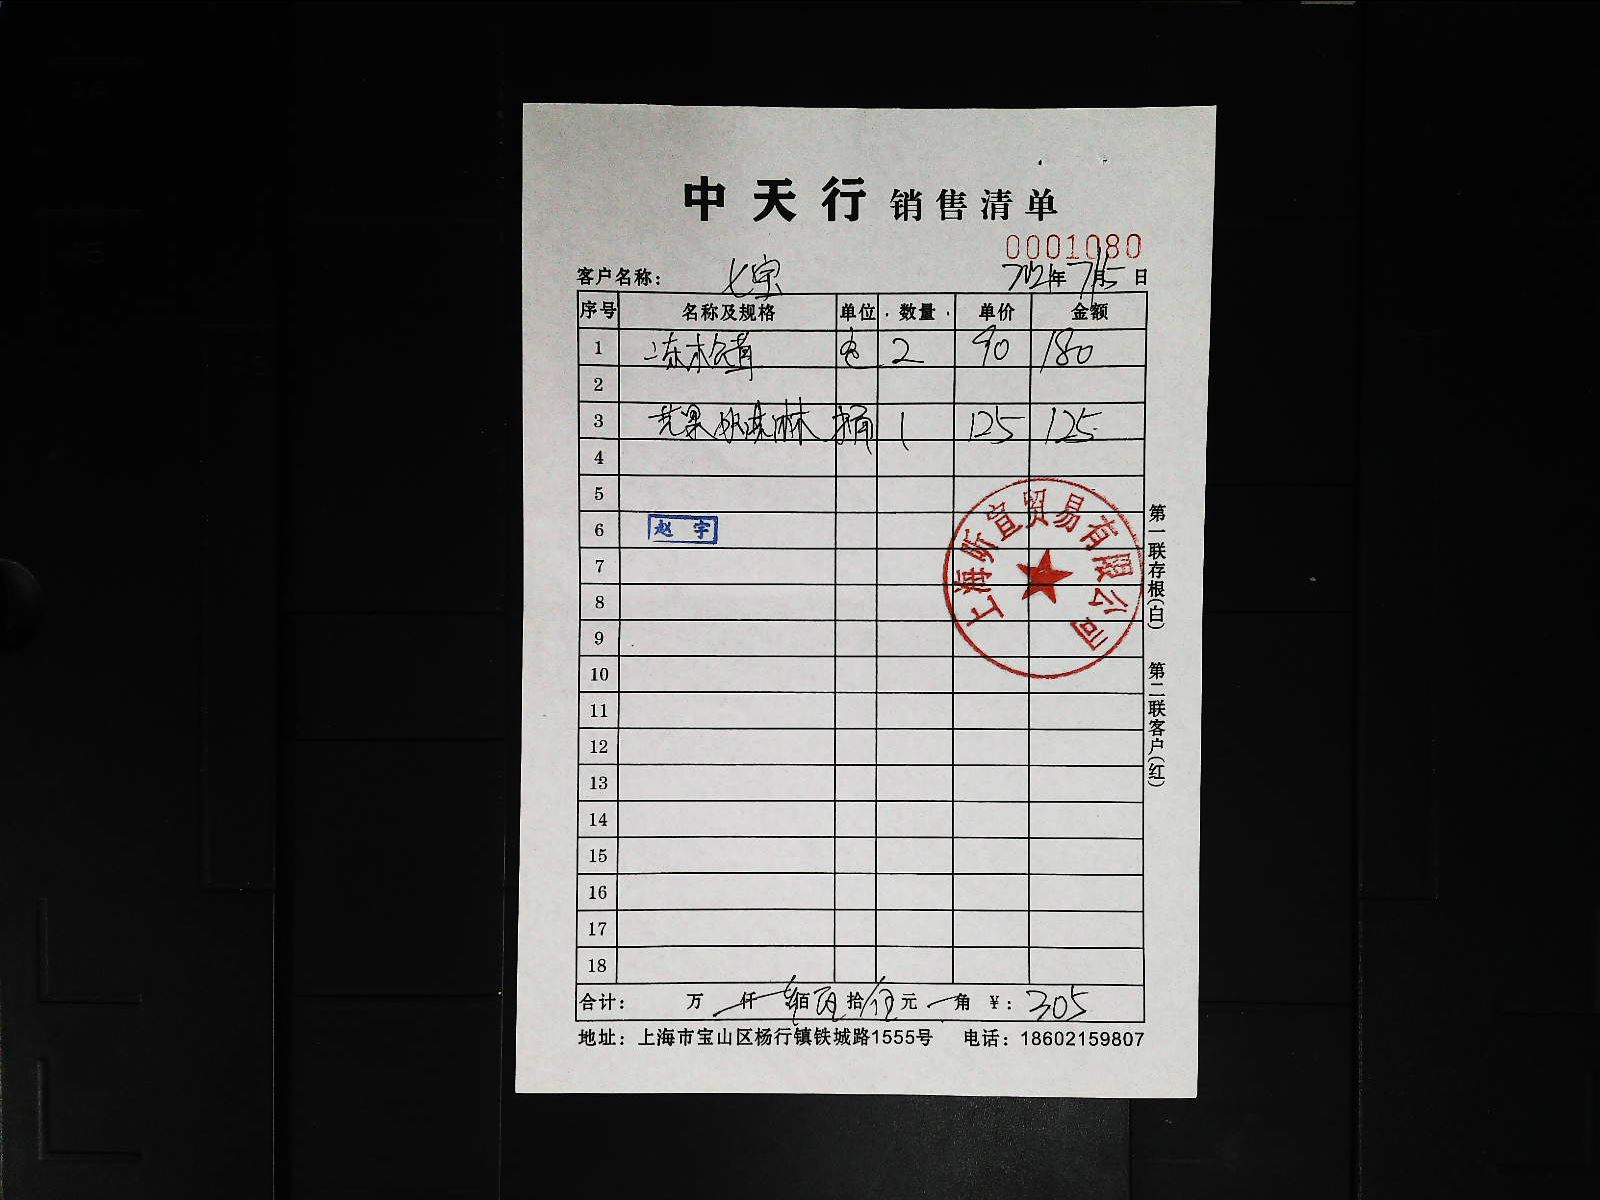 中天行 销售清单
0001080
客户名称： 七宝 年7月5日
序号 名称及规格 单位 数量 单价 金额
1 冻木松茸 包 2 90 180
2
3 芒果冰淇淋 桶 1 125 125
4
5
6 赵宇
7
8
9
10
11
12
13
14
15
16
17
18
上海昕宜贸易有限公司
第一联存根(白) 第二联客户(红)
合计： 万 仟 佰 拾 伍元 角 ￥：305
地址：上海市宝山区杨行镇铁城路1555号 电话：18602159807